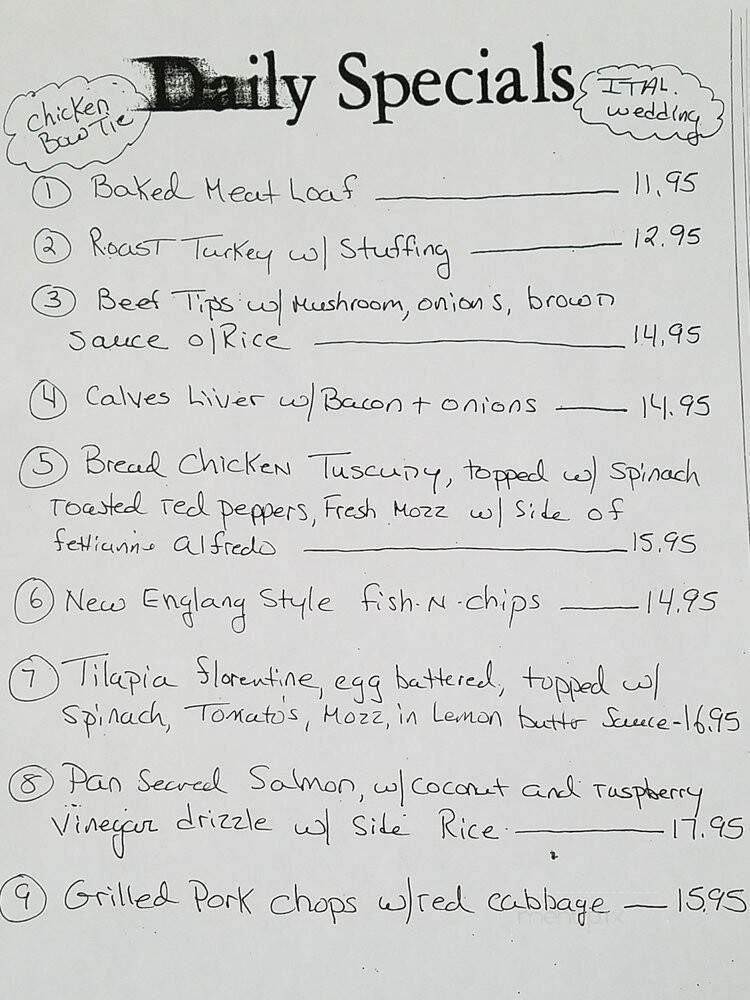 Daily Specials
Chicken
Bow Tie
ITAL.
wedding
① Baked Meat Loaf 11.95
② Roast Turkey w/ Stuffing 12.95
③ Beef Tips w/ Mushroom, onions, brown
Sauce o/Rice 14.95
④ Calves Liver w/Bacon + onions 14.95
⑤ Bread Chicken Tuscuny, topped w/ Spinach
roasted red peppers, Fresh Mozz w/ Side of
fettiannie alfredo 15.95
⑥ New Englang Style fish-N-chips 14.95
⑦ Tilapia florentine, egg battered, topped w/
Spinach, Tomato's, Mozz, in Lemon butter Sauce-16.95
⑧ Pan Seared Salmon, w/coconut and raspberry
Vinegar drizzle w/ Side Rice 17.95
⑨ Grilled Pork chops w/red cabbage 15.95